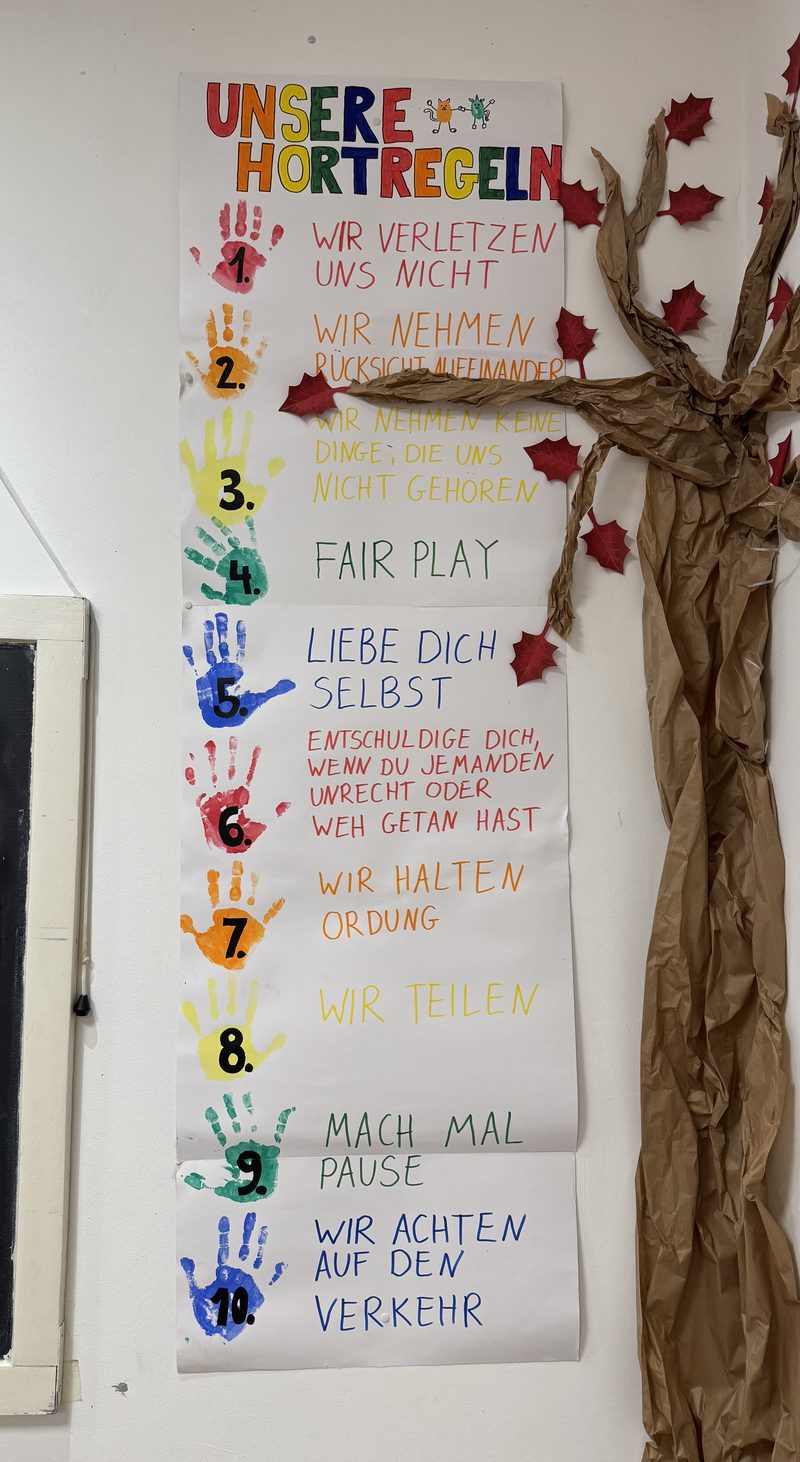 UNSERE
HORTREGELN
1. WIR VERLETZEN
UNS NICHT
2. WIR NEHMEN
RÜCKSICHT AUFEINANDER
3. WIR NEHMEN KEINE
DINGE, DIE UNS
NICHT GEHÖREN
4. FAIR PLAY
5. LIEBE DICH
SELBST
6. ENTSCHULDIGE DICH,
WENN DU JEMANDEN
UNRECHT ODER
WEH GETAN HAST
7. WIR HALTEN
ORDUNG
8. WIR TEILEN
9. MACH MAL
PAUSE
10. WIR ACHTEN
AUF DEN
VERKEHR